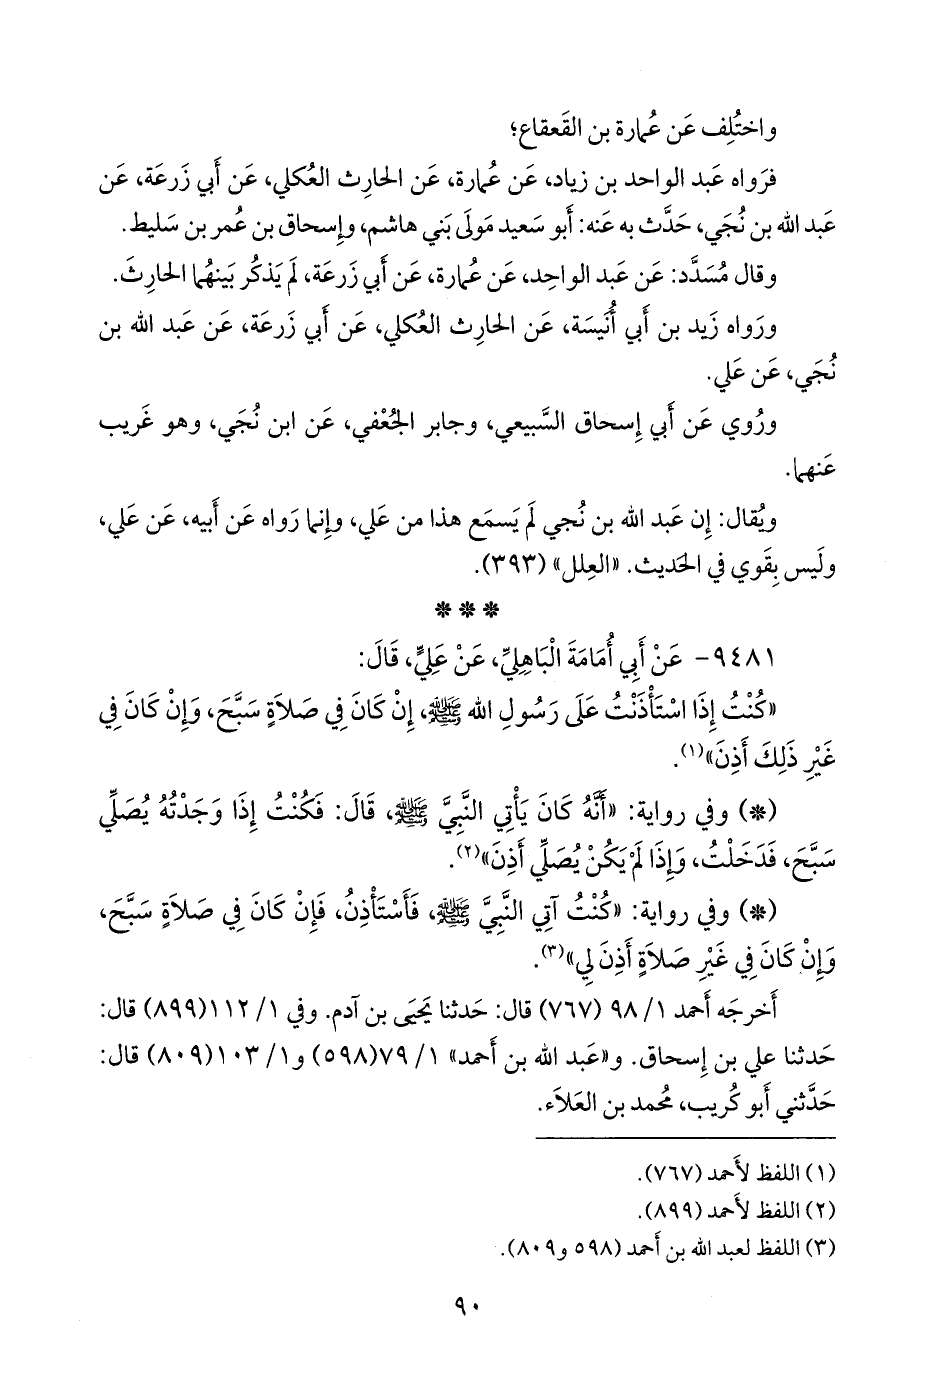 واختُلِف عَن عُمارة بن القَعقاع؛
فرَواه عَبد الواحد بن زياد، عَن عُمارة، عَن الحارِث العُكلي، عَن أَبي زَرعَة، عَن
عَبد الله بن نُجَي، حَدَّث به عَنه: أَبو سَعيد مَولَى بَني هاشم، وإِسحاق بن عُمر بن سَليط.
وقال مُسَدَّد: عَن عَبد الواحِد، عَن عُمارة، عَن أَبي زَرعَة، لَم يَذكُر بَينهُما الحارِثَ.
ورَواه زَيد بن أَبي أُنَيسَة، عَن الحارِث العُكلي، عَن أَبي زَرعَة، عَن عَبد الله بن
نُجَي، عَن عَلي.
ورُوي عَن أَبي إِسحاق السَّبيعي، وجابر الجُعْفي، عَن ابن نُجَي، وهو غَريب
عَنهما.
ويُقال: إِن عَبد الله بن نُجي لَم يَسمَع هذا من عَلي، وإِنما رَواه عَن أَبيه، عَن عَلي،
ولَيس بِقَوي في الحَديث. «العِلل» (٣٩٣).
* * *
٩٤٨١- عَنْ أَبِي أُمَامَةَ الْبَاهِلِيِّ، عَنْ عَلِيٍّ، قَالَ:
«كُنْتُ إِذَا اسْتَأْذَنْتُ عَلَى رَسُولِ الله ﷺ، إِنْ كَانَ فِي صَلاَةٍ سَبَّحَ، وَإِنْ كَانَ فِي
غَيْرِ ذَلِكَ أَذِنَ»(١).
(*) وفي رواية: «أَنَّهُ كَانَ يَأْتِي النَّبِيَّ ﷺ، قَالَ: فَكُنْتُ إِذَا وَجَدْتُهُ يُصَلِّي
سَبَّحَ، فَدَخَلْتُ، وَإِذَا لَمْ يَكُنْ يُصَلِّي أَذِنَ»(٢).
(*) وفي رواية: «كُنْتُ آتِي النَّبِيَّ ﷺ، فَأَسْتَأْذِنُ، فَإِنْ كَانَ فِي صَلاَةٍ سَبَّحَ،
وَإِنْ كَانَ فِي غَيْرِ صَلاَةٍ أَذِنَ لِي»(٣).
أَخرجَه أَحمد ١/ ٩٨ (٧٦٧) قال: حَدثنا يَحيَى بن آدم. وفي ١/ ١١٢(٨٩٩) قال:
حَدثنا علي بن إِسحاق. و«عَبد الله بن أَحمد» ١/ ٧٩(٥٩٨) و١/ ١٠٣(٨٠٩) قال:
حَدَّثني أَبو كُريب، مُحمد بن العَلاَء.
(١) اللفظ لأَحمد (٧٦٧).
(٢) اللفظ لأَحمد (٨٩٩).
(٣) اللفظ لعبد الله بن أَحمد (٥٩٨ و٨٠٩).
٩٠